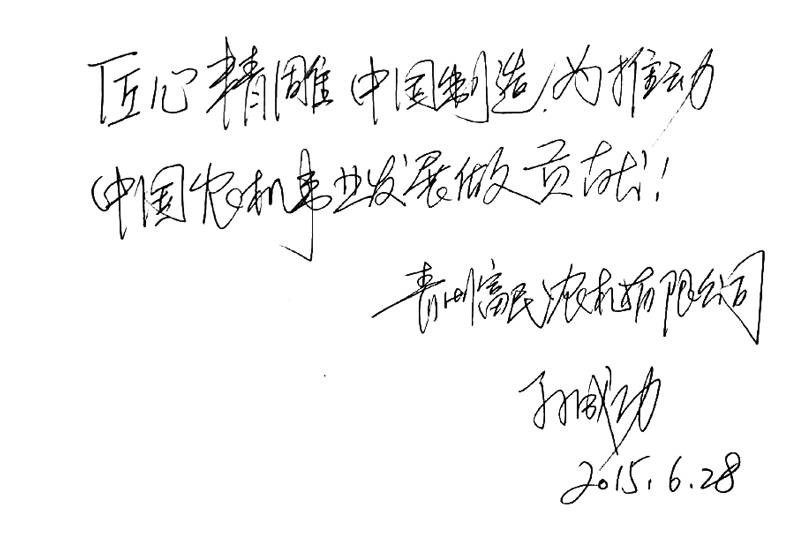 匠心精雕中国制造,为推动
中国农机事业发展做贡献!
青州富民农机有限公司
孙成功
2015.6.28